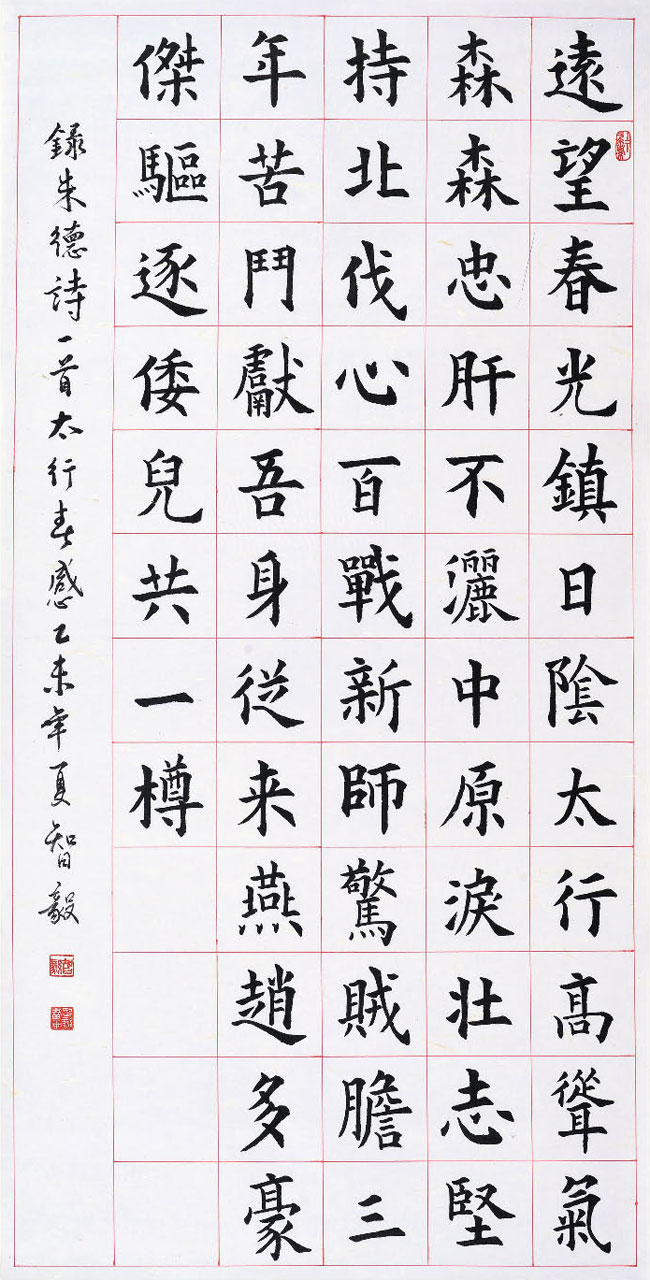 遠望春光鎮日陰太行髙聳氣
森森忠肝不灑中原淚壯志堅
持北伐心百戰新師驚賊膽三
年苦鬥獻吾身從来燕趙多豪
傑驅逐倭兒共一樽
録朱德詩一首太行春感乙未年夏智毅